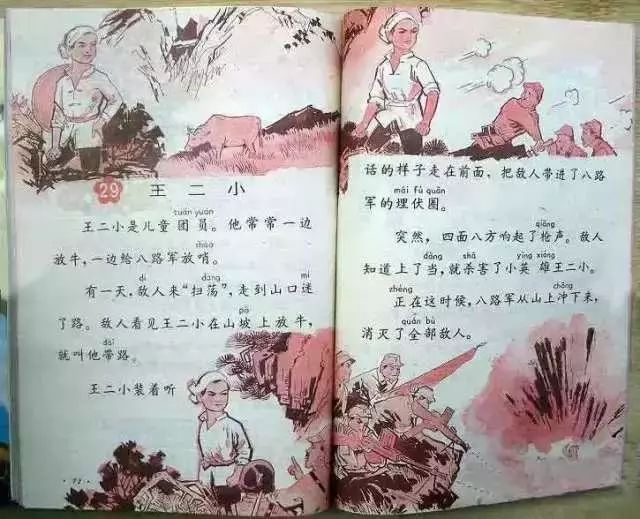 29 王二小
tuán yuán
王二小是儿童团员。他常常一边
shào
放牛，一边给八路军放哨。
dí dàng mí
有一天，敌人来“扫荡”，走到山口迷
pō
了路。敌人看见王二小在山坡上放牛，
dài
就叫他带路。
王二小装着听
话的样子走在前面、把敌人带进了八路
mái fú quān
军的埋伏圈。
qiāng
突然，四面八方响起了枪声。敌人
dàng shā yīng xióng
知道上了当，就杀害了小英雄王二小。
zhèng chōng
正在这时候，八路军从山上冲下来，
quán bù
消灭了全部敌人。